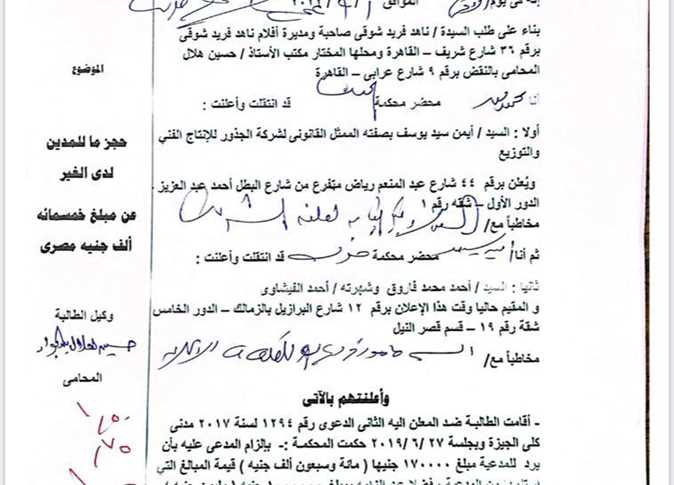 الموافق
بناء على طلب السيدة / ناهد فريد شوقى صاحبة ومديرة أفلام ناهد فريد شوقى
برقم ٣٦ شارع شريف – القاهرة ومحلها المختار مكتب الأستاذ / حسين هلال
المحامى بالنقض برقم ٩ شارع عرابى – القاهرة
أنا محضر محكمة قد انتقلت وأعلنت :
أولا : السيد / أيمن سيد يوسف بصفته الممثل القانونى لشركة الجذور للإنتاج الفني
والتوزيع
ويُعلن برقم ٤٤ شارع عبد المنعم رياض متفرع من شارع البطل أحمد عبد العزيز -
الدور الأول – شقة رقم ١
مخاطباً مع/
ثم أنا/ محضر محكمة قد انتقلت وأعلنت :
ثانيا : السيد / أحمد محمد فاروق وشهرته / أحمد الفيشاوى
و المقيم حاليا وقت هذا الإعلان برقم ١٢ شارع البرازيل بالزمالك – الدور الخامس
شقة رقم ١٩ – قسم قصر النيل
مخاطباً مع/
وأعلنتهم بالآتى
- أقامت الطالبة ضد المعلن اليه الثانى الدعوى رقم ١٢٩٤ لسنة ٢٠١٧ مدنى
كلى الجيزة وبجلسة ٢٧ /٦ /٢٠١٩ حكمت المحكمة :- بإلزام المدعى عليه بأن
يرد للمدعية مبلغ ١٧٠٠٠٠ جنيها ( مائة وسبعون ألف جنيه ) قيمة المبالغ التي
الموضوع
حجز ما للمدين
لدى الغير
عن مبلغ خمسمائه
ألف جنيه مصرى
وكيل الطالبة
المحامى